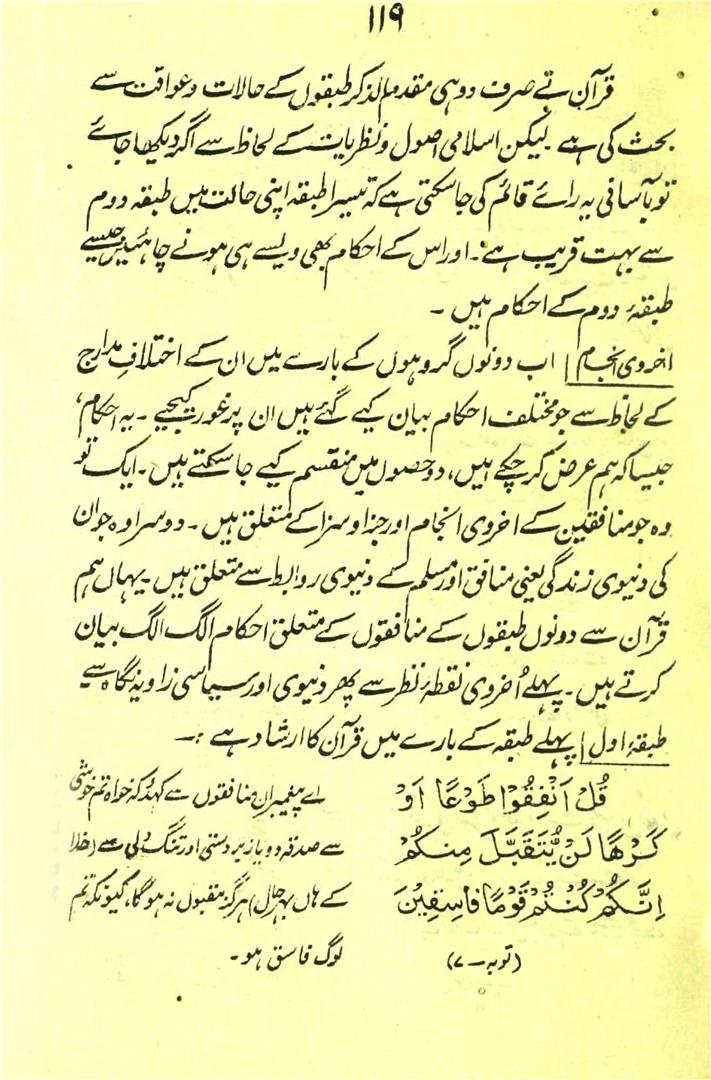 ۱۱۹
قرآن نے صرف دو ہی مقدم الذکر طبقوں کے حالات و عواقت سے
بحث کی ہے۔ لیکن اسلامی اصول و نظریات کے لحاظ سے اگر دیکھا جائے
تو بآسانی یہ رائے قائم کی جا سکتی ہے کہ تیسرا طبقہ اپنی حالت میں طبقہ دوم
سے بہت قریب ہے۔ اور اس کے احکام بھی ویسے ہی ہونے چاہئیں جیسے
طبقۂ دوم کے احکام ہیں۔
اخروی انجام | اب دونوں گروہوں کے بارے میں ان کے اختلافِ مدارج
کے لحاظ سے جو مختلف احکام بیان کیے گئے ہیں ان پر غور کیجیے۔ یہ احکام،
جیسا کہ ہم عرض کر چکے ہیں، دو حصوں میں منقسم کیے جا سکتے ہیں۔ ایک تو
وہ جو منافقین کے اخروی انجام اور جزا و سزا کے متعلق ہیں۔ دوسرا وہ جو ان
کی دنیوی زندگی یعنی منافق اور مسلم کے دنیوی روابط سے متعلق ہیں۔ یہاں ہم
قرآن سے دونوں طبقوں کے منافقوں کے متعلق احکام الگ الگ بیان
کرتے ہیں۔ پہلے اُخروی نقطۂ نظر سے پھر دنیوی اور سیاسی زاویہ نگاہ سے
طبقۂ اول | پہلے طبقہ کے بارے میں قرآن کا ارشاد ہے :—
قُلْ اَنْفِقُوْا طَوْعًا اَوْ
كَرْهًا لَنْ يُّتَقَبَّلَ مِنكُمْ
اِنَّكُمْ كُنْتُمْ قَوْمًا فَاسِقِيْنَ
(توبہ — ۷)
اے پیغمبر ان منافقوں سے کہدو کہ خواہ تم خوشی
سے صدقہ دو یا زبردستی اور تنگ دلی سے (خدا
کے ہاں بہرحال) ہرگز مقبول نہ ہوگا، کیونکہ تم
لوگ فاسق ہو۔